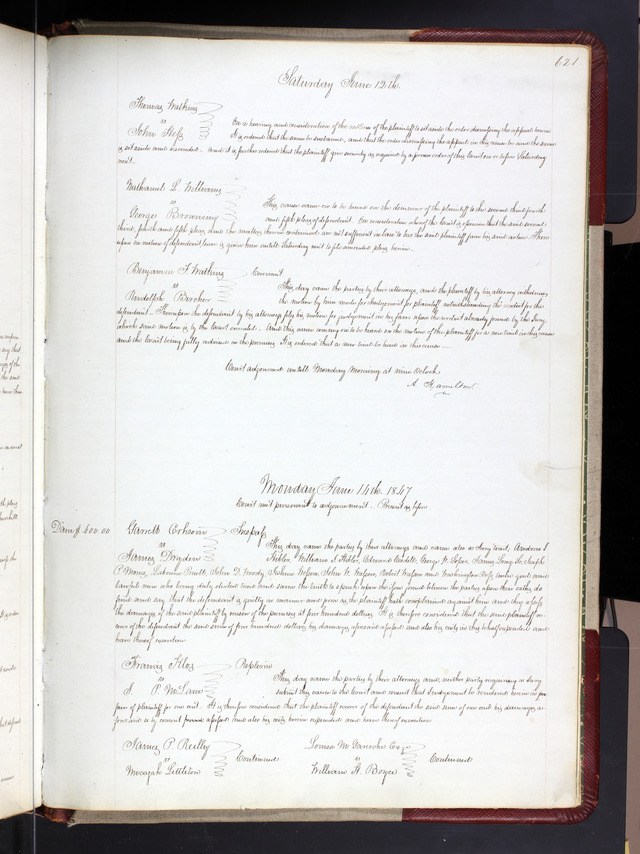 621
Saturday June 12th.
Thomas Watkins
vs
John Hess
On a hearing and consideration of the motion of the plaintiff to set aside the order dismissing the appeal herein
It is ordered that the same be sustained, and that the order dismissing the appeal in this cause be and the same
is set aside and rescinded. And it is further ordered that the plaintiff give security as required by a former order of this Court on or before Saturday
next.
Nathaniel L. Williams
vs
George Browning
This cause came on to be heard on the demurrer of the plaintiff to the second third fourth
and fifth pleas of defendant. On consideration whereof the Court is of opinion that the said second
third, fourth and fifth pleas and the matters therein contained are not sufficient in law to bar the said plaintiff from his said action. There
upon on motion of defendant leave is given him untill Saturday next to file amended pleas herein.
Benjamin F. Watkins
vs
Rudolph Bircher
Covenant
This day came the parties by their attorneys, and the plaintiff by his attorney withdraws
the motion by him made for Judgement for plaintiff notwithstanding the verdict for the
defendant - Thereupon the defendant by his attorneys files his motion for judgement in his favor upon the verdict already found by the Jury
which said motion is by the Court overruled. And this cause coming on to be heard on the motion of the plaintiff for a new trial in this cause
and the Court being fully advised in the premises It is ordered that a new trial be had in this cause
Court adjourned untill Monday Morning at nine Oclock
A. Hamilton
Monday June 14th. 1847
Court met pursuant to adjournment - Present as before
Dam $ 400.00
Garrett
vs
James Dryden
Trespass
This day came the parties by their attorneys and came also a Jury towit;
William
Washington
lawful men who being duly elected tried and sworn the truth to speak upon the issue joined between the parties upon their oaths do
find and say that the defendant is guilty in manner and form as the plaintiff hath complained against him and they assess
the damages of the said plaintiff by reason of the premises at four hundred dollars It is therefore considered that the said plaintiff re
cover of the defendant the said sum of four hundred dollars his damages aforesaid assessed and also his costs in this behalf expended and
have thereof execution
Francis
vs
P. McLane
Replevin
This day came the parties by their attorneys and neither party requiring a Jury
submit this cause to the Court and consent that Judgement be rendered herein in fa
vor of plaintiff for one cent. It is therefore considered that the plaintiff recover of the defendant the said sum of one cent his damages a
foresaid so by consent found assessed and also his costs herein expended and have thereof execution
James P. Reilly
vs
Micajah Littleton
Continued
vs
William A.
Continued